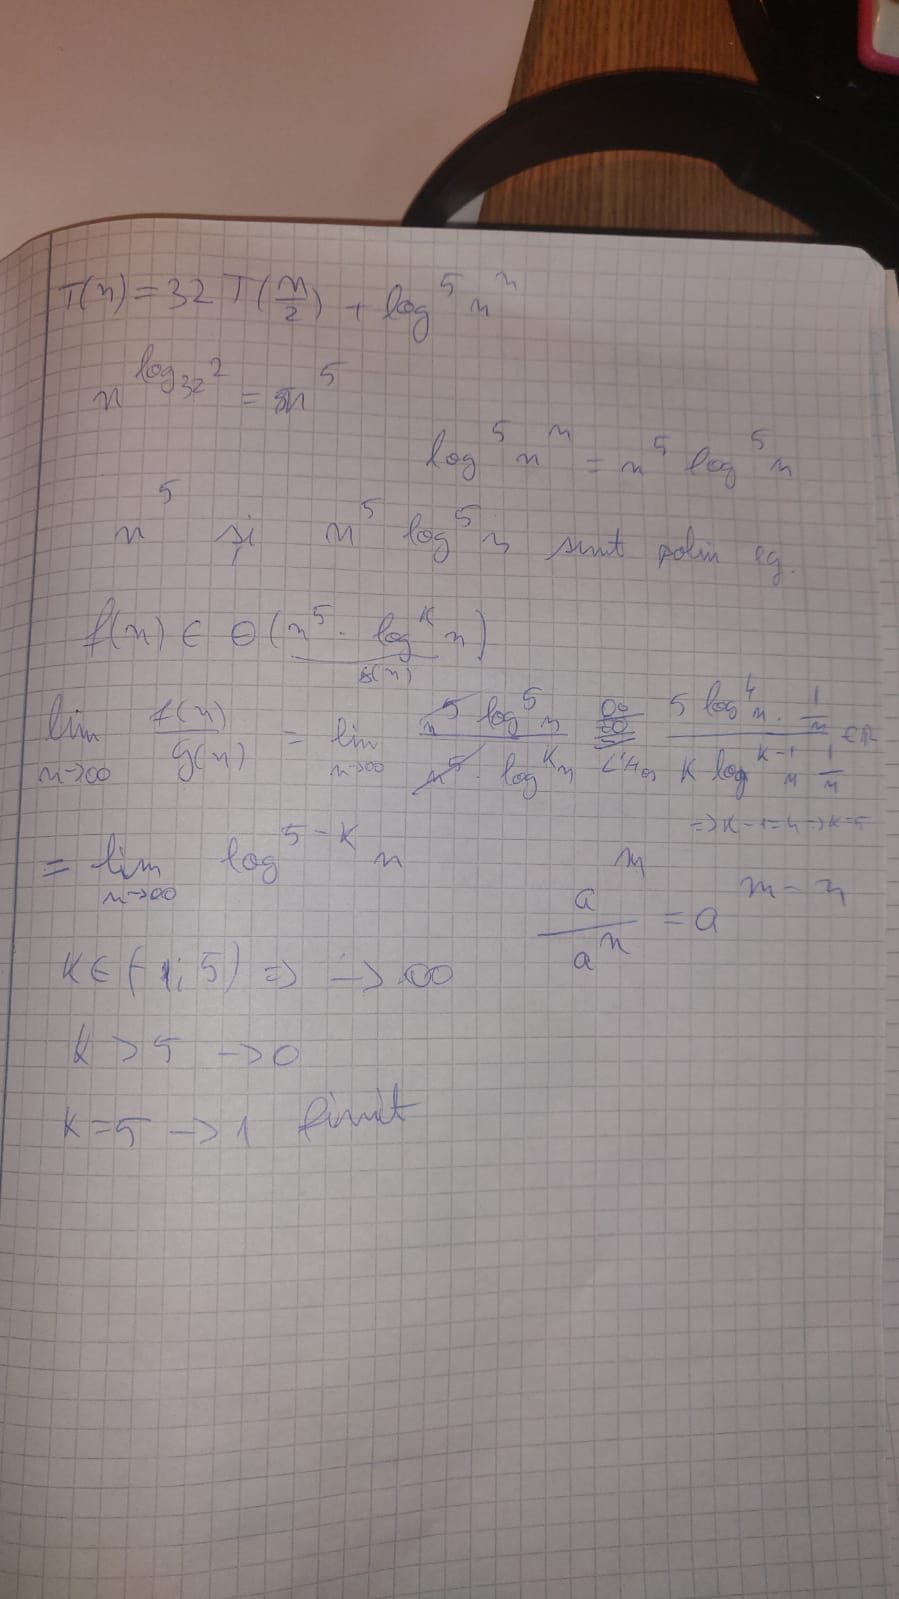 T(n) = 32 T(n/2) + log^5 n^n
n^(log_32 2) = n^5
log^5 n^n = n^5 log^5 n
n^5 și n^5 log^5 n sunt polin eg.
f(n) ∈ Θ(n^5 · log^k n)
g(n)
lim n→∞ f(n)/g(n) = lim n→∞ (n^5 log^5 n)/(n^5 · log^k n) ∞/∞ L'Hos (5 log^4 n · 1/n)/(k log^(k-1) n 1/n) ∈ R
⇒ k-1=4 → k=5
= lim n→∞ log^(5-k) n
a^m/a^n = a^(m-n)
k ∈ (-1; 5) ⇒ → ∞
k > 5 → 0
k = 5 → 1 finit